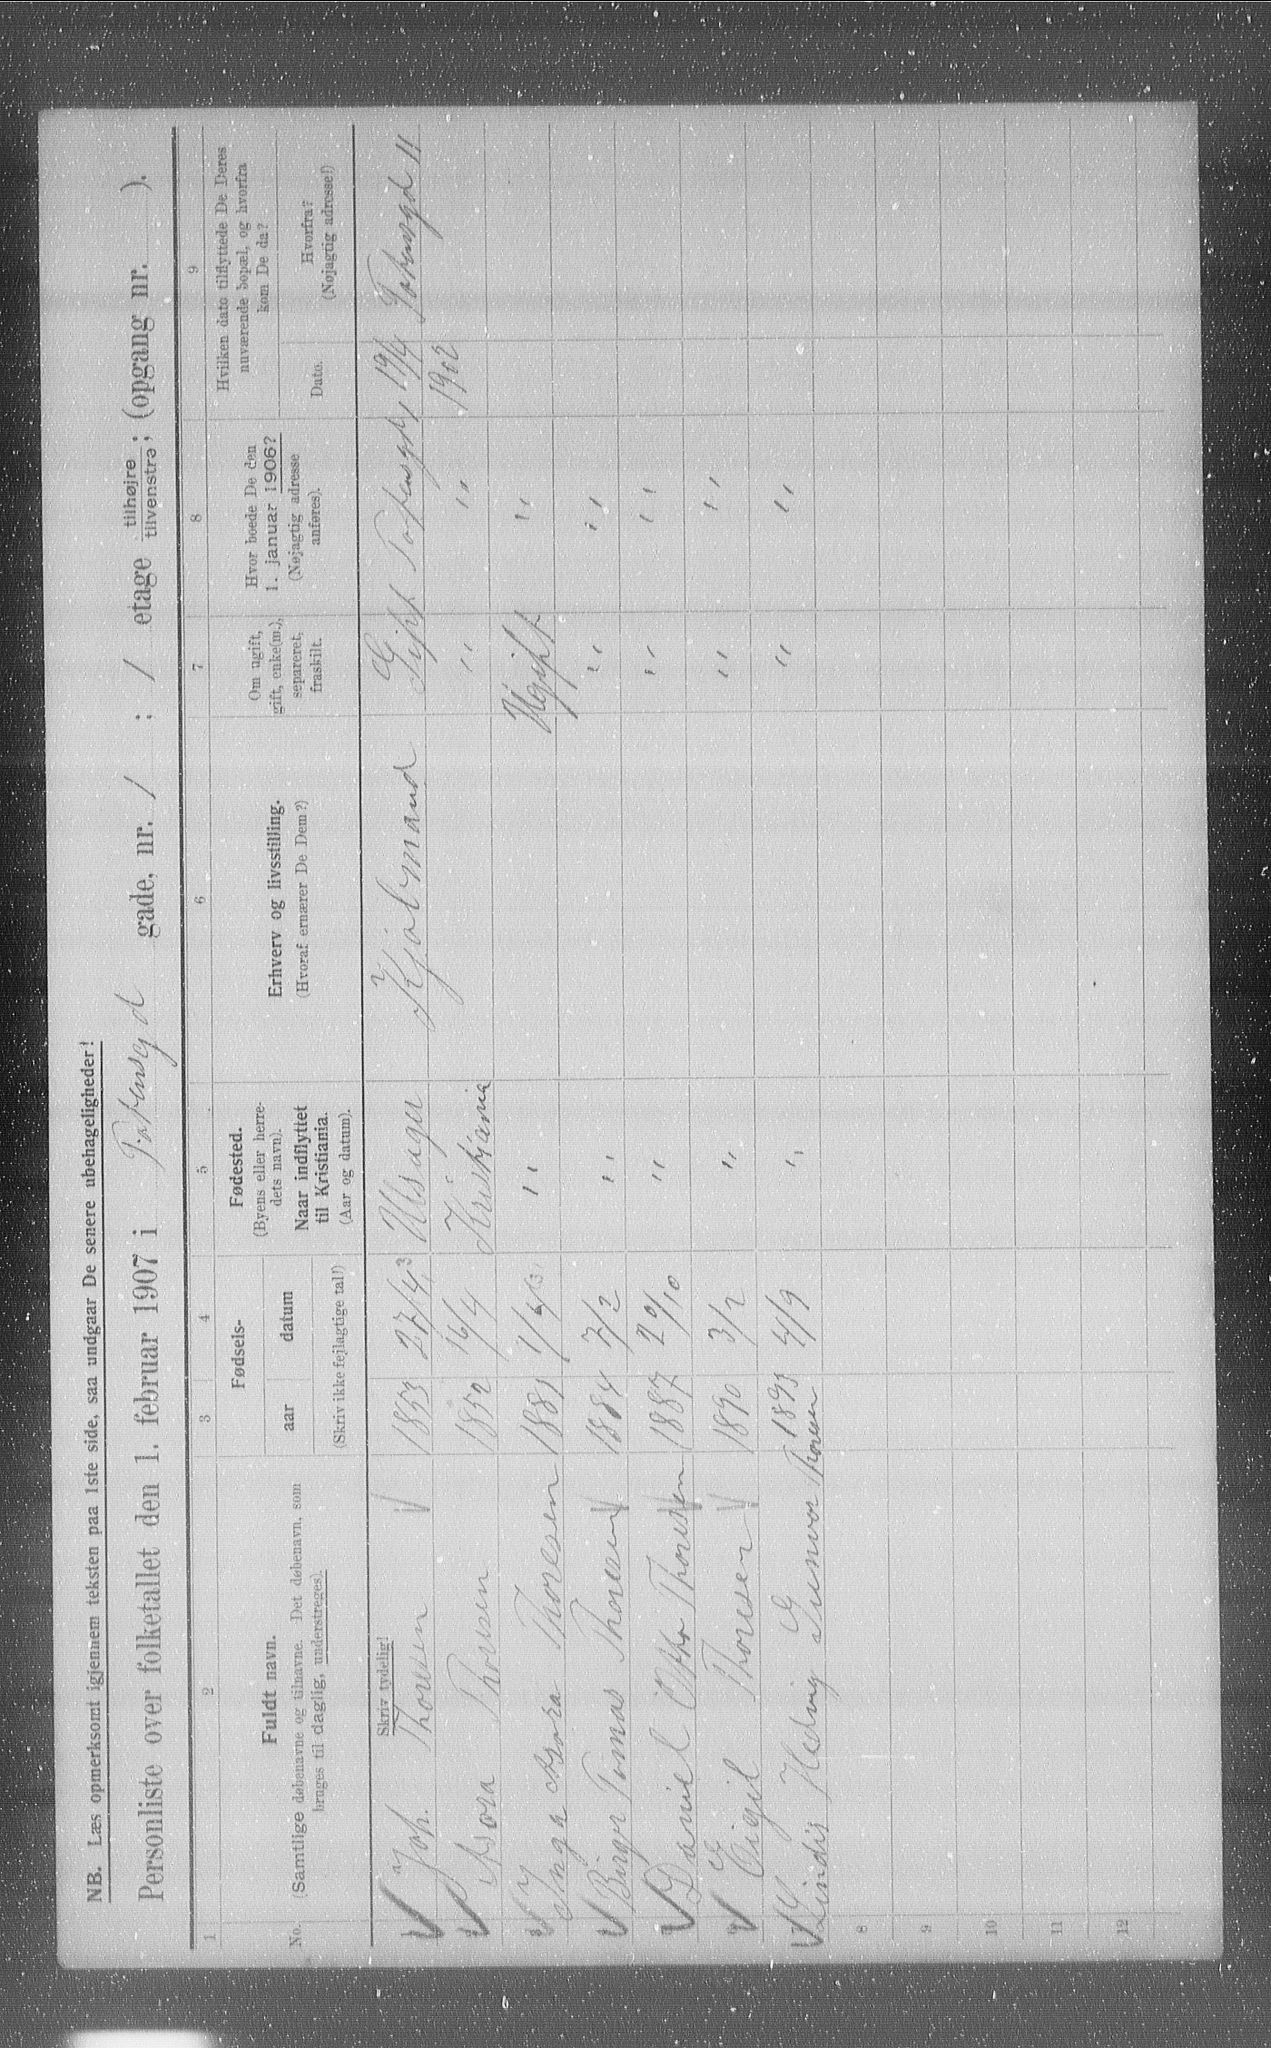 NB. Læs opmerksomt igjennem teksten paa 1ste side, saa undgaar De senere ubehageligheder!
Personliste over folketallet den 1. februar 1907 i Toftensgd gade, nr. 1 ; 1 etage tilhøjre tilvenstre ; (opgang nr. ).
1 2 3 4 5 6 7 8 9
No.
Fuldt navn.
(Samtlige døbenavne og tilnavne. Det døbenavn, som
bruges til daglig, understreges).
Skriv tydelig!
Fødsels-
aar datum
(Skriv ikke fejlagtige tal!)
Fødested.
(Byens eller herre-
dets navn).
Naar indflyttet
til Kristiania.
(Aar og datum).
Erhverv og livsstilling.
(Hvoraf ernærer De Dem?)
Om ugift,
gift, enke(m.),
separeret,
fraskilt.
Hvor boede De den
1. januar 1906?
(Nøjagtig adresse
anføres).
Hvilken dato tilflyttede De Deres
nuværende bopæl, og hvorfra
kom De da?
Dato.
Hvorfra?
(Nøjagtig adresse!)
Joh. Thoresen 1853 27/4 Gift 19/4 Toftensgd 11
Thoresen 1852 16/4 Kristiania " " 1902
Inga Thoresen 1881 " Ugift "
Birger Tomas Thoresen 1884 7/2 " " "
Daniel Otto Thoresen 1887 20/10 " " "
Eigil Thoresen 1890 3/2 " " "
7 Lindis Hedvig Gunvor Thoresen 4/9 " " "
8
9
10
11
12